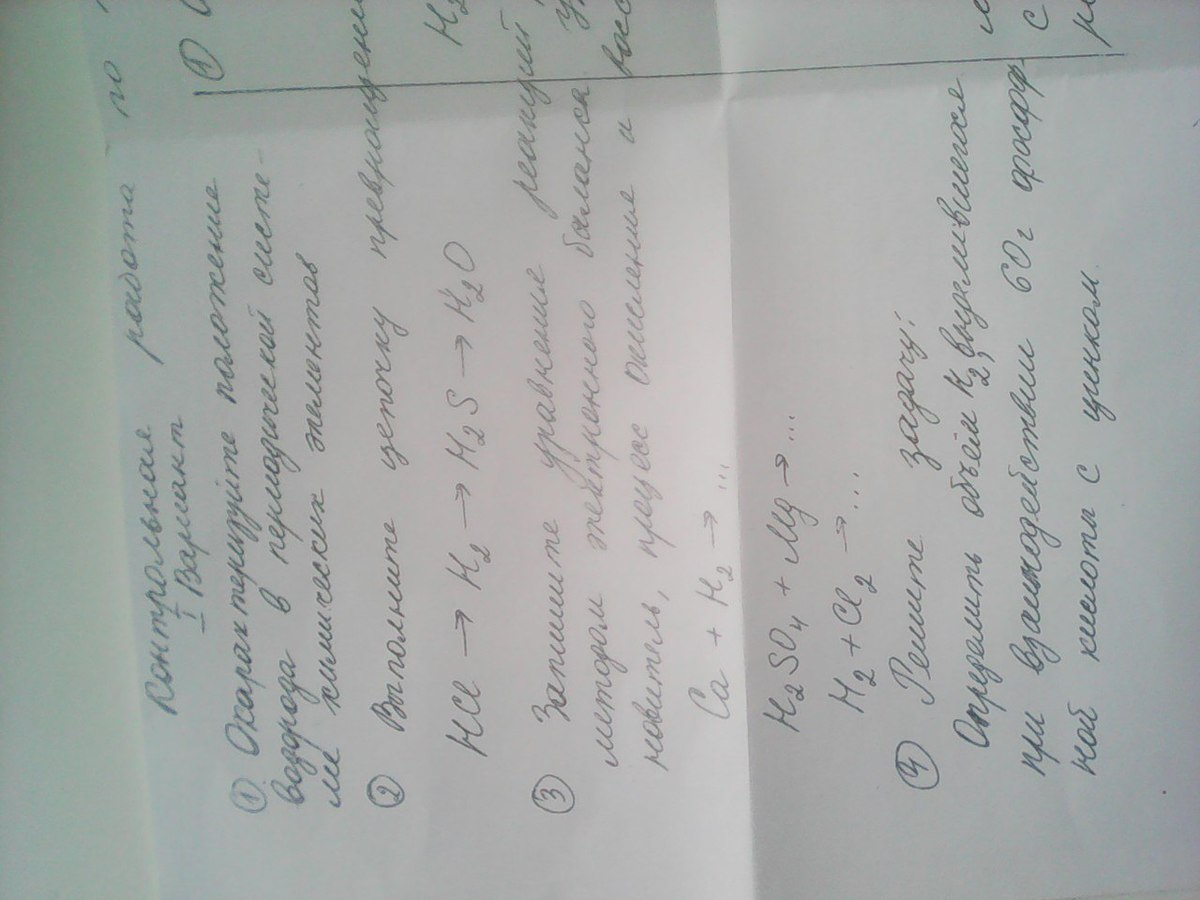 Контрольная работа по
I Вариант
① Охарактеризуйте положение
водорода в периодической систе-
ме химических элементов
② Выполните цепочку превращени
HCl → H2 → H2S → H2O
③ Запишите уравнение реакций
методом электронного баланса
новитель, процесс окисление и восс
Ca + H2 → ...
H2SO4 + Mg → ...
H2 + Cl2 → ...
④ Решите задачу:
Определить объём H2, выделившегося
при взаимодействии 60 г фосфор
ной кислоты с цинком.
①
H2
у
с